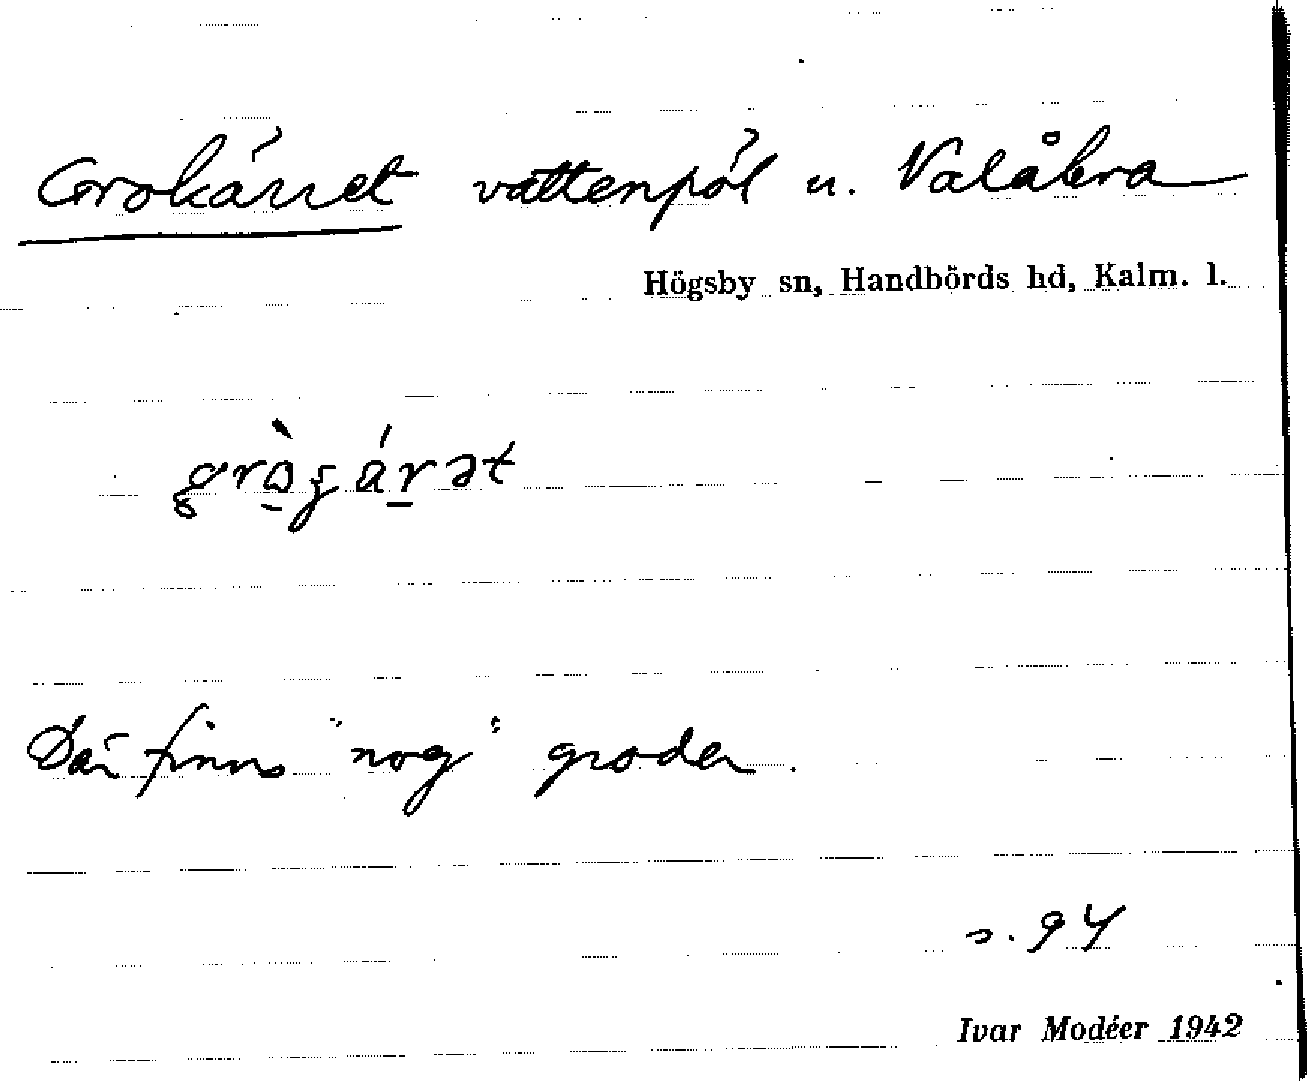 Grokärret vattenpöl u. Valåkra
Högsby sn, Handbörds hd, Kalm. l.
Där finns "nog" groder.
s. 94
Ivar Modéer 1942